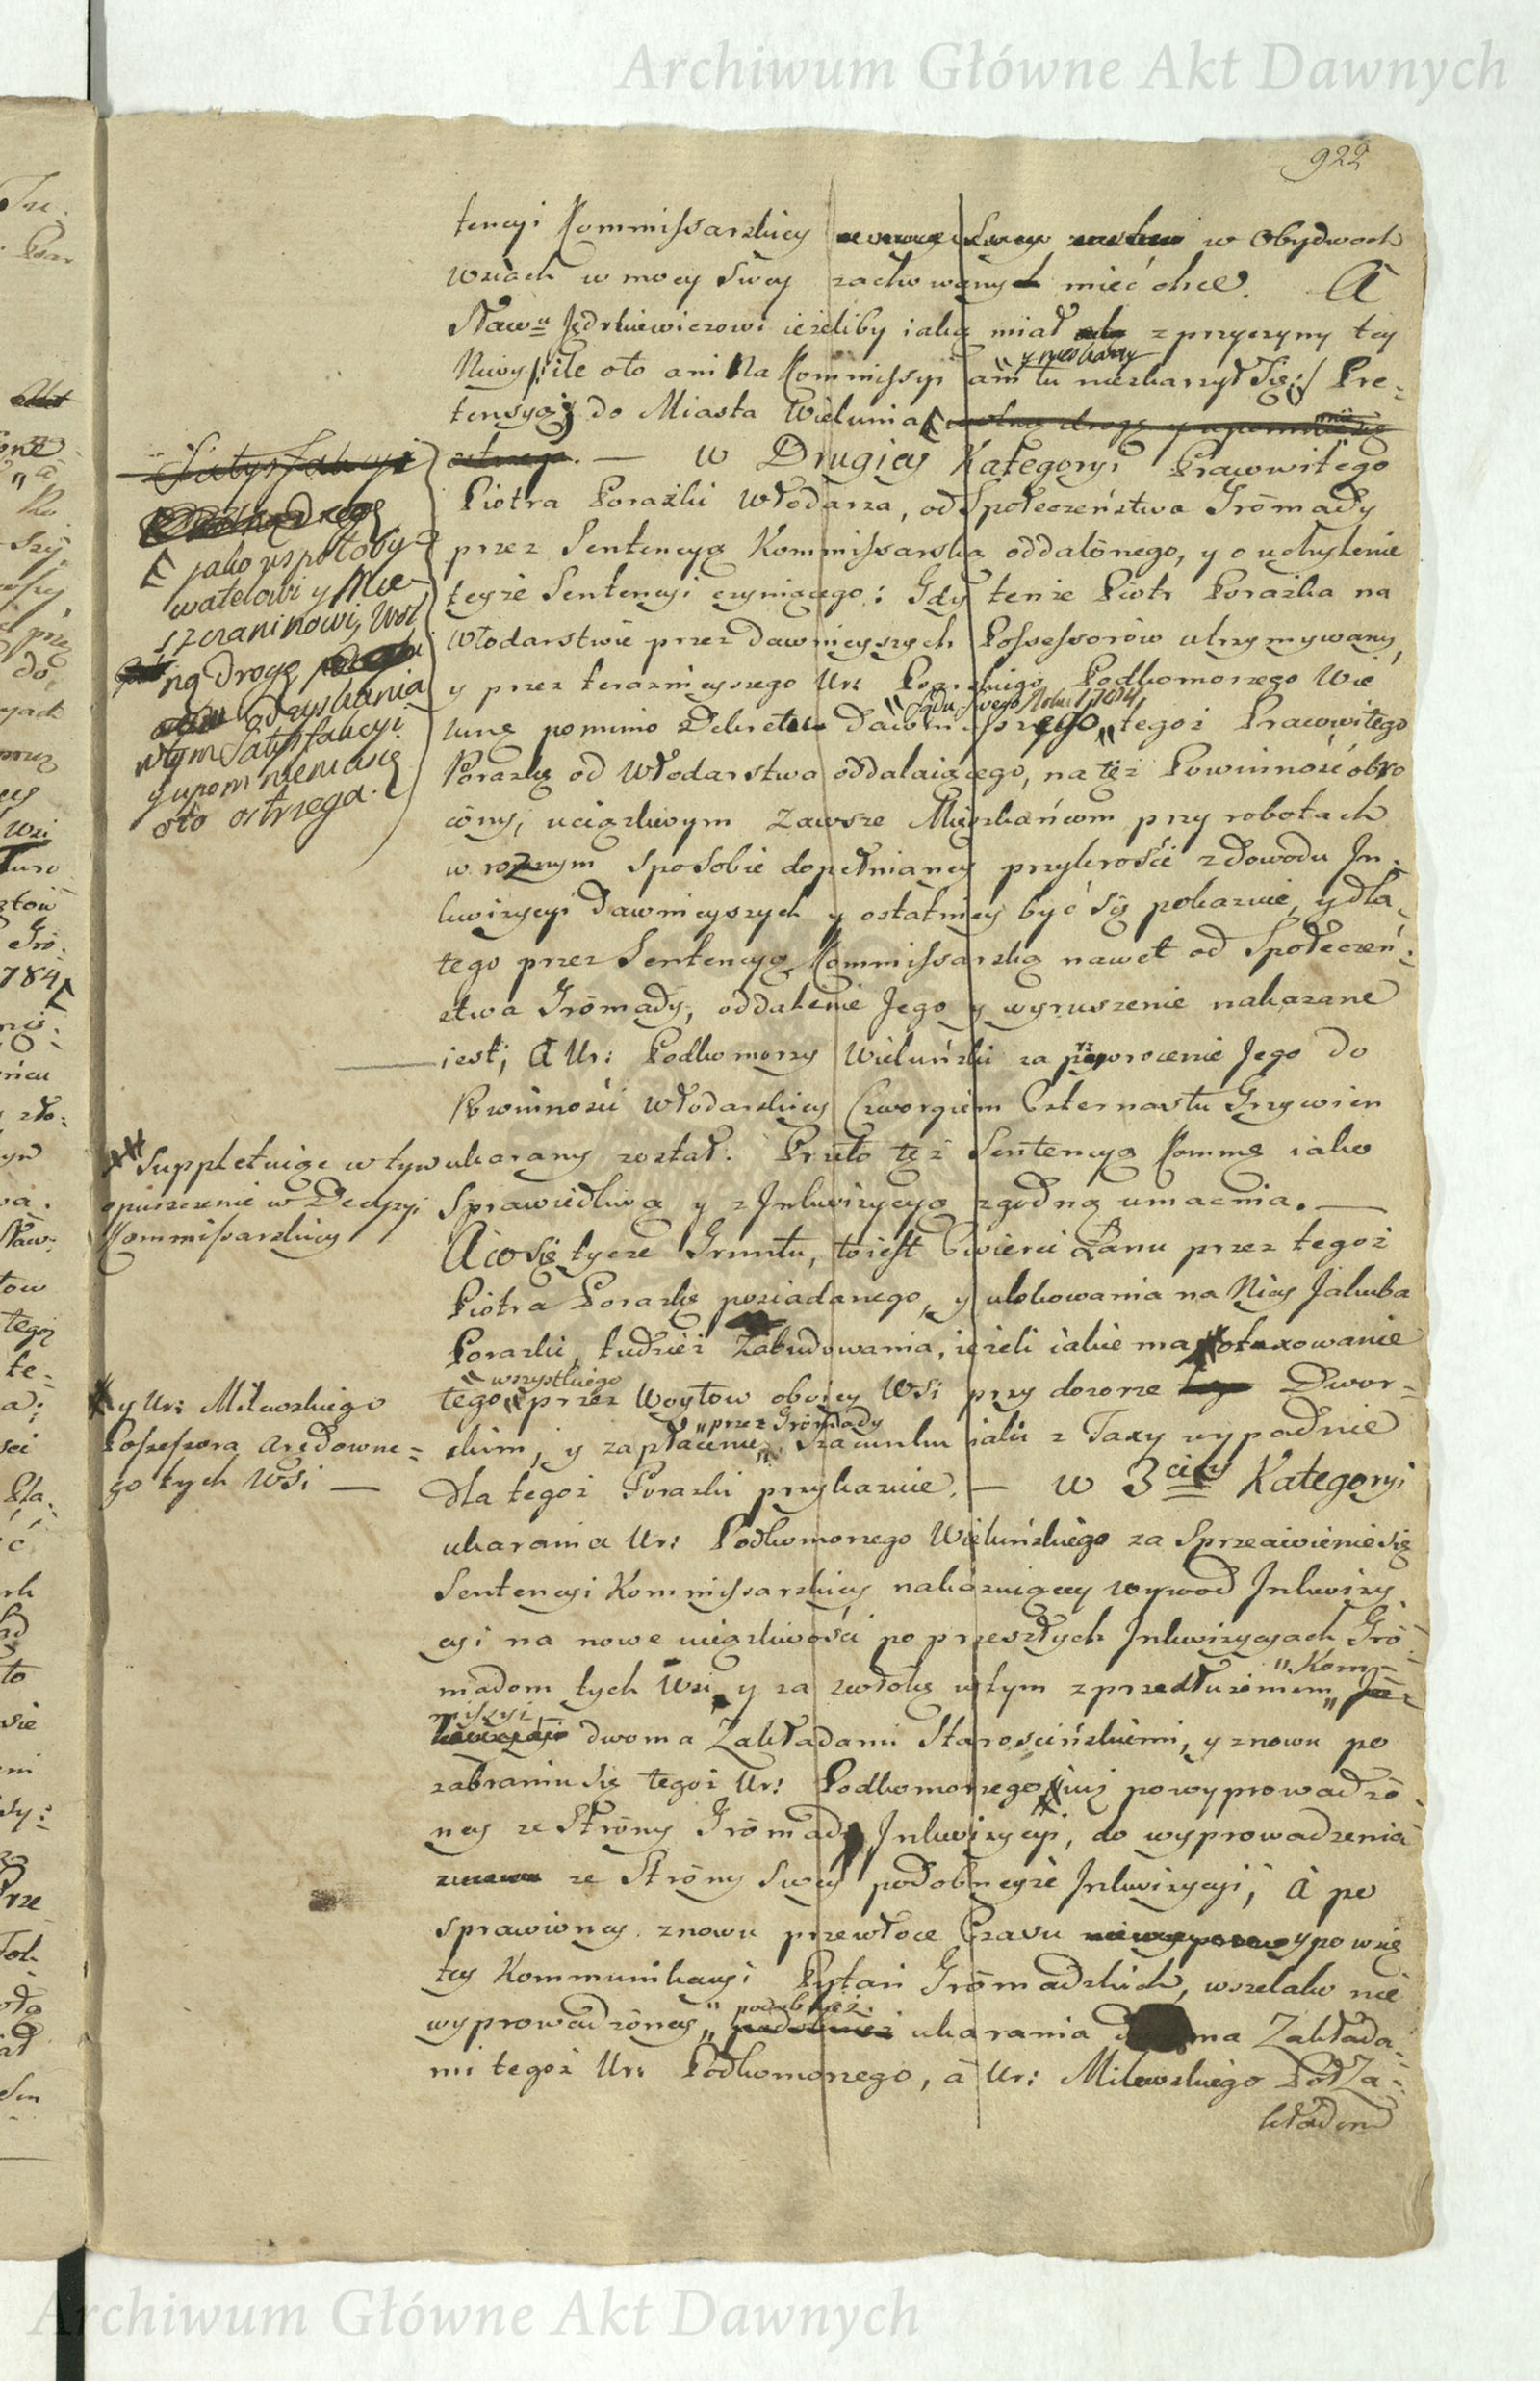 Archiwum Główne Akt Dawnych
922
tencyi Kommissarskiey w obydwoch
wsiach w mocy swey zachowany mieć chce. A
Sław: Jędrkiewiczowi ieżeliby iaką miał z przyczyny tey
Niwy ile oto ani Na Kommissyi ani tu nieskarzył się Pre-
tensyą do Miasta Wielunia wolną drogę y upomnienie się
ostrzega. — W Drugiey Kategoryi Prawowitego
Piotra Porażki Włodarza, od Społeczeństwa Grōmady
przez Sentencyą Kommissarską oddalōnego, y o uchylenie
teyże Sentencyi czyniącego: Gdy tenże Piotr Porażka na
Włodarstwie przez dawnieyszych Possessorów utrzymywany,
y przez teraznieyszego Ur: Podkomorzego Wie
lunę pomimo Dekretu tegoż Prawowitego
Porażkę od Włodarstwa oddalaiącego, na tęż Powinność obró
cōny, uciązliwym zawsze Mieszkańcom przy robotach
w roznym sposobie dopełnianey przykrości z dowodu In-
kwizycyi dawnieyszych y ostatniey być się pokazuie, y dla-
tego przez Sentencyą Kommissarską nawet od Społeczeń-
stwa Grōmady, oddalenie Jego y wyruszenie nakazane
iest; A Ur: Podkomorzy Wieluński za przywrocenie Jego do
Powinności Włodarskiey Czworgiem Czternastu Grzywien
ukarany został. Przeto tęż Sentencyą Kommę iako
Sprawiedliwą y z Inkwizycyą zgodną umacnia. —
A co się tycze Gruntu, to iest Cwierci Łanu przez tegoż
Piotra Porażkę posiadanego, y ulokowania na Niey Jakuba
Porażki, tudzież Zabudowania, ieżeli iakie ma otaxowanie
tego wszystkiego przez Woytow oboiey Wsi przy dozorze Dwor-
skim, y zapłacenie przez Grōmady Szacunku iaki z Taxy wypadnie
dla tegoż Porażki przykazuie. — W 3ciey Kategoryi
ukarania Ur: Podkomorzego Wieluńskiego za Sprzeciwienie się
Sentencyi Kommissarskiey nakazuiącey wywod Inkwizy
cyi na nowe uciązliwości po przeszłych Inkwizycyach Grō
madom tych Wsi y za zwłokę w tym z przedłużeniem Kom-
missyi dwoma Zakładami Starościńskiemi, y znowu po
zabraniu się tegoż Ur: Podkomorzego iuż po wyprowadzō
ney ze Strōny Grōmady Inkwizycyi, do wyprowadzenia
ze Strōny swey podobneyże Inkwizycyi, à po
sprawioney znowu przewłoce Czasu y po wzię
tey Kommunikacyi Pytań Grōmadzkich, wszelako nie
wyprowadzōney podobnież ukarania dwoma Zakłada-
mi tegoż Ur: Podkomorzego, à Ur: Milewskiego Poł Za-
kładem
Satysfakcyi
jako wspołoby-
watelowi y Mie-
szczaninowi, Wol
ną drogę
odzyskania
w tym Satysfakcyi
y upomnienia się
oto ostrzega.
Suppletuiąc w tym
opuszczenie w Decyzyi
Kommissarskiey
y Ur: Milewskiego
Possessora arędowne-
go tych Wsi —
Archiwum Główne Akt Dawnych